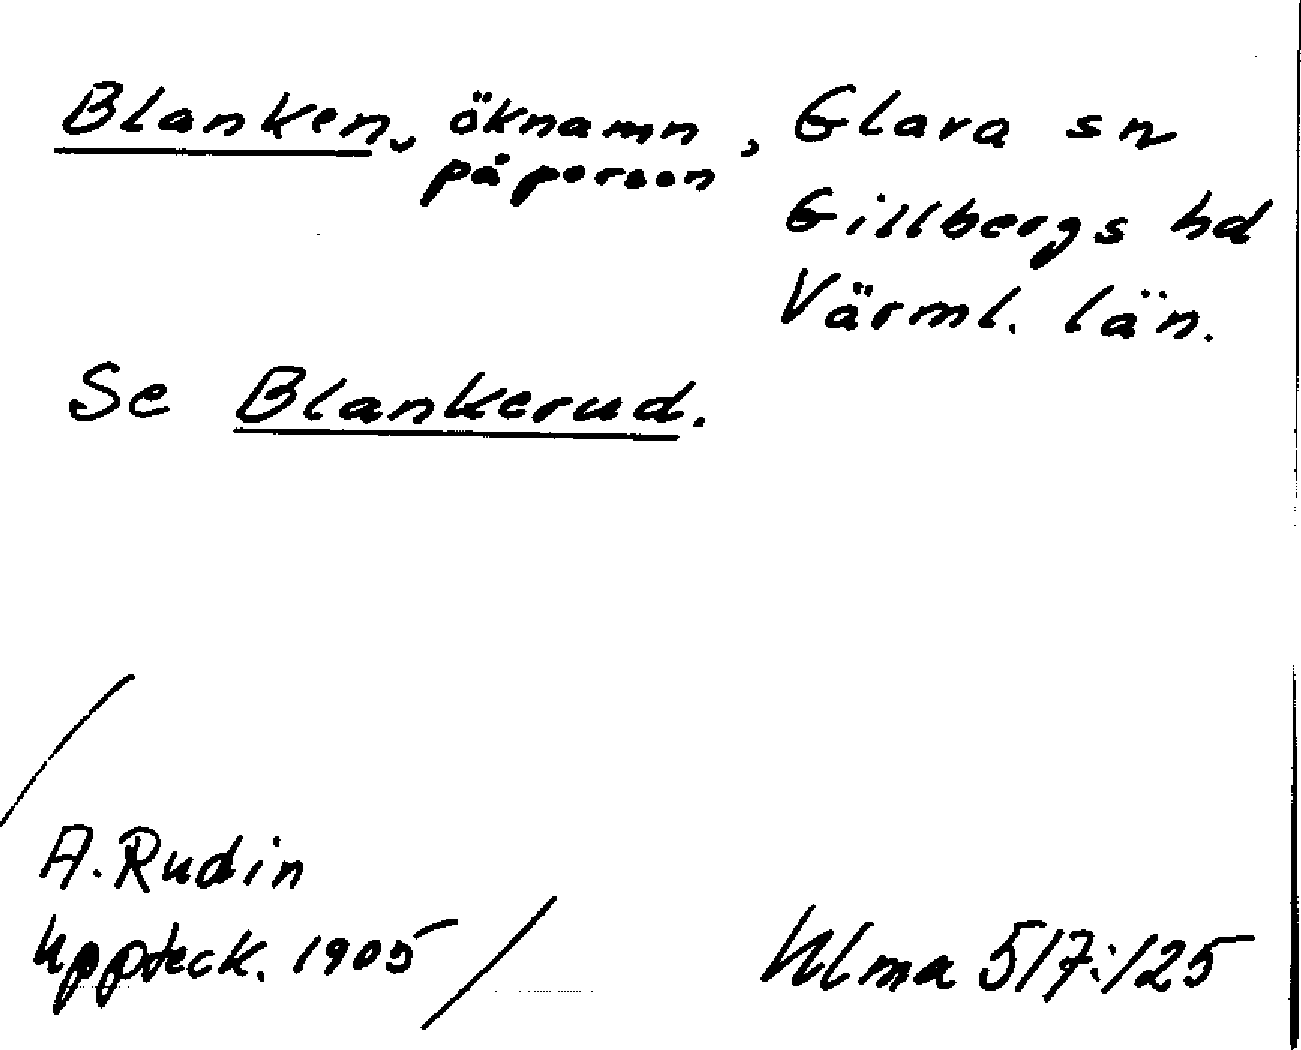 Blanken, öknamn på person, Glava sn
Gillbergs hd
Värml. län.
Se Blankerud.
A. Rudin
Uppteck. 1905
Ulma 517:125